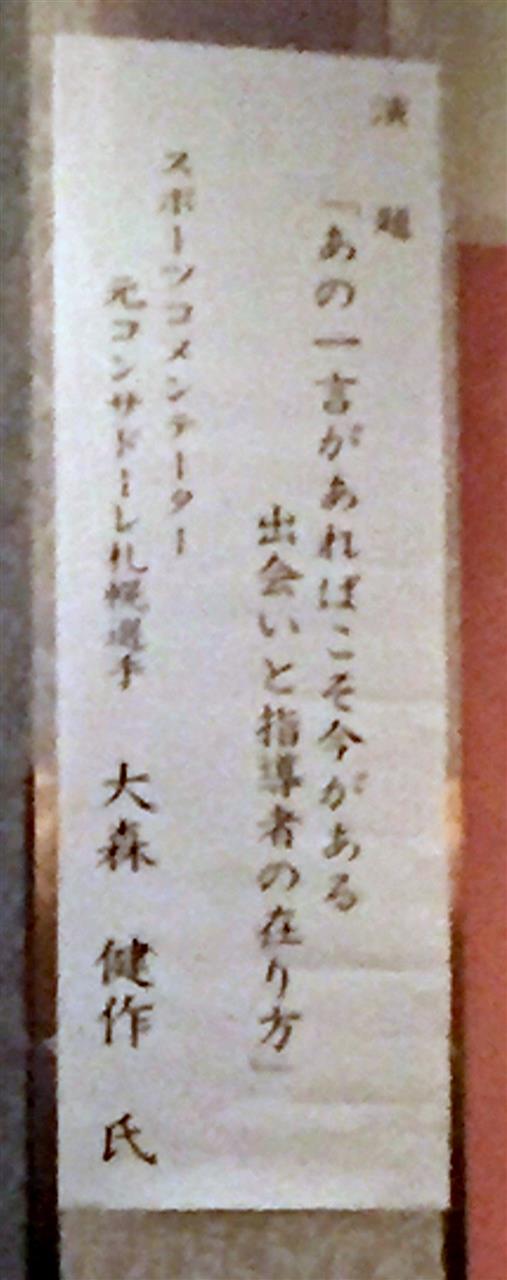 演題
「あの一言があればこそ今がある
出会いと指導者の在り方」
スポーツコメンテーター
元コンサドーレ札幌選手 大森 健作 氏